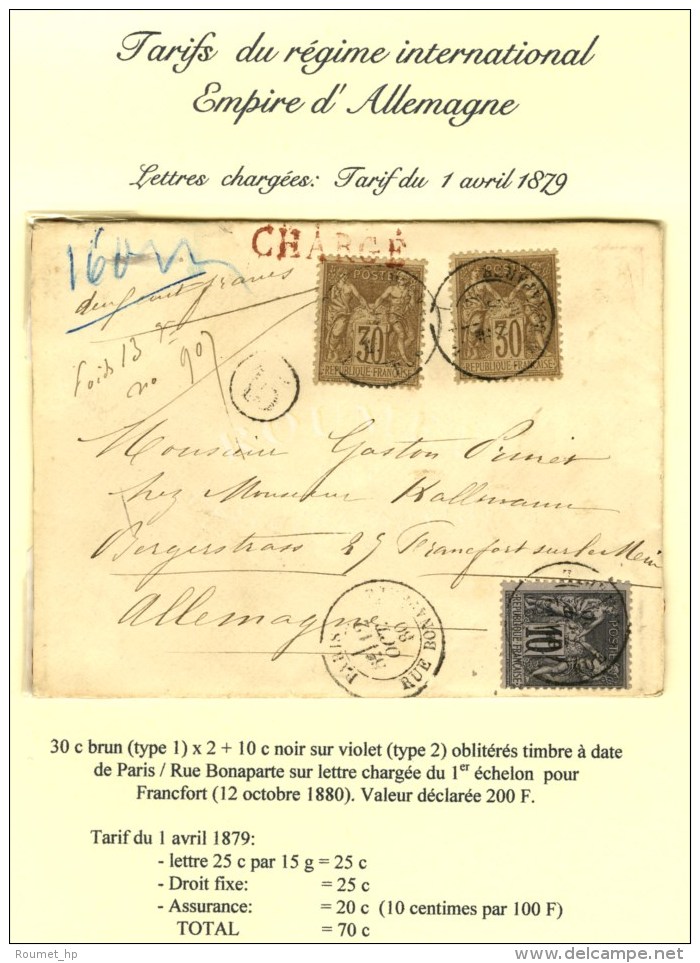 Tarifs du régime international
Empire d'Allemagne
Lettres chargées: Tarif du 1 avril 1879
CHARGÉ
160
deux cent francs
Poids 13
no 907
POSTE
30
REPUBLIQUE FRANÇAISE
30
REPUBLIQUE FRANÇAISE
Monsieur Gaston
chez Monsieur Kallmann
Bergerstrass 25 Francfort sur le Mein
Allemagne
PARIS
12
OCT
80
RUE BONAPARTE
POSTE
10
REPUBLIQUE FRANÇAISE
30 c brun (type 1) x 2 + 10 c noir sur violet (type 2) oblitérés timbre à date
de Paris / Rue Bonaparte sur lettre chargée du 1er échelon pour
Francfort (12 octobre 1880). Valeur déclarée 200 F.
Tarif du 1 avril 1879:
- lettre 25 c par 15 g = 25 c
- Droit fixe: = 25 c
- Assurance: = 20 c (10 centimes par 100 F)
TOTAL = 70 c
Roumet_hp
delcampe.net